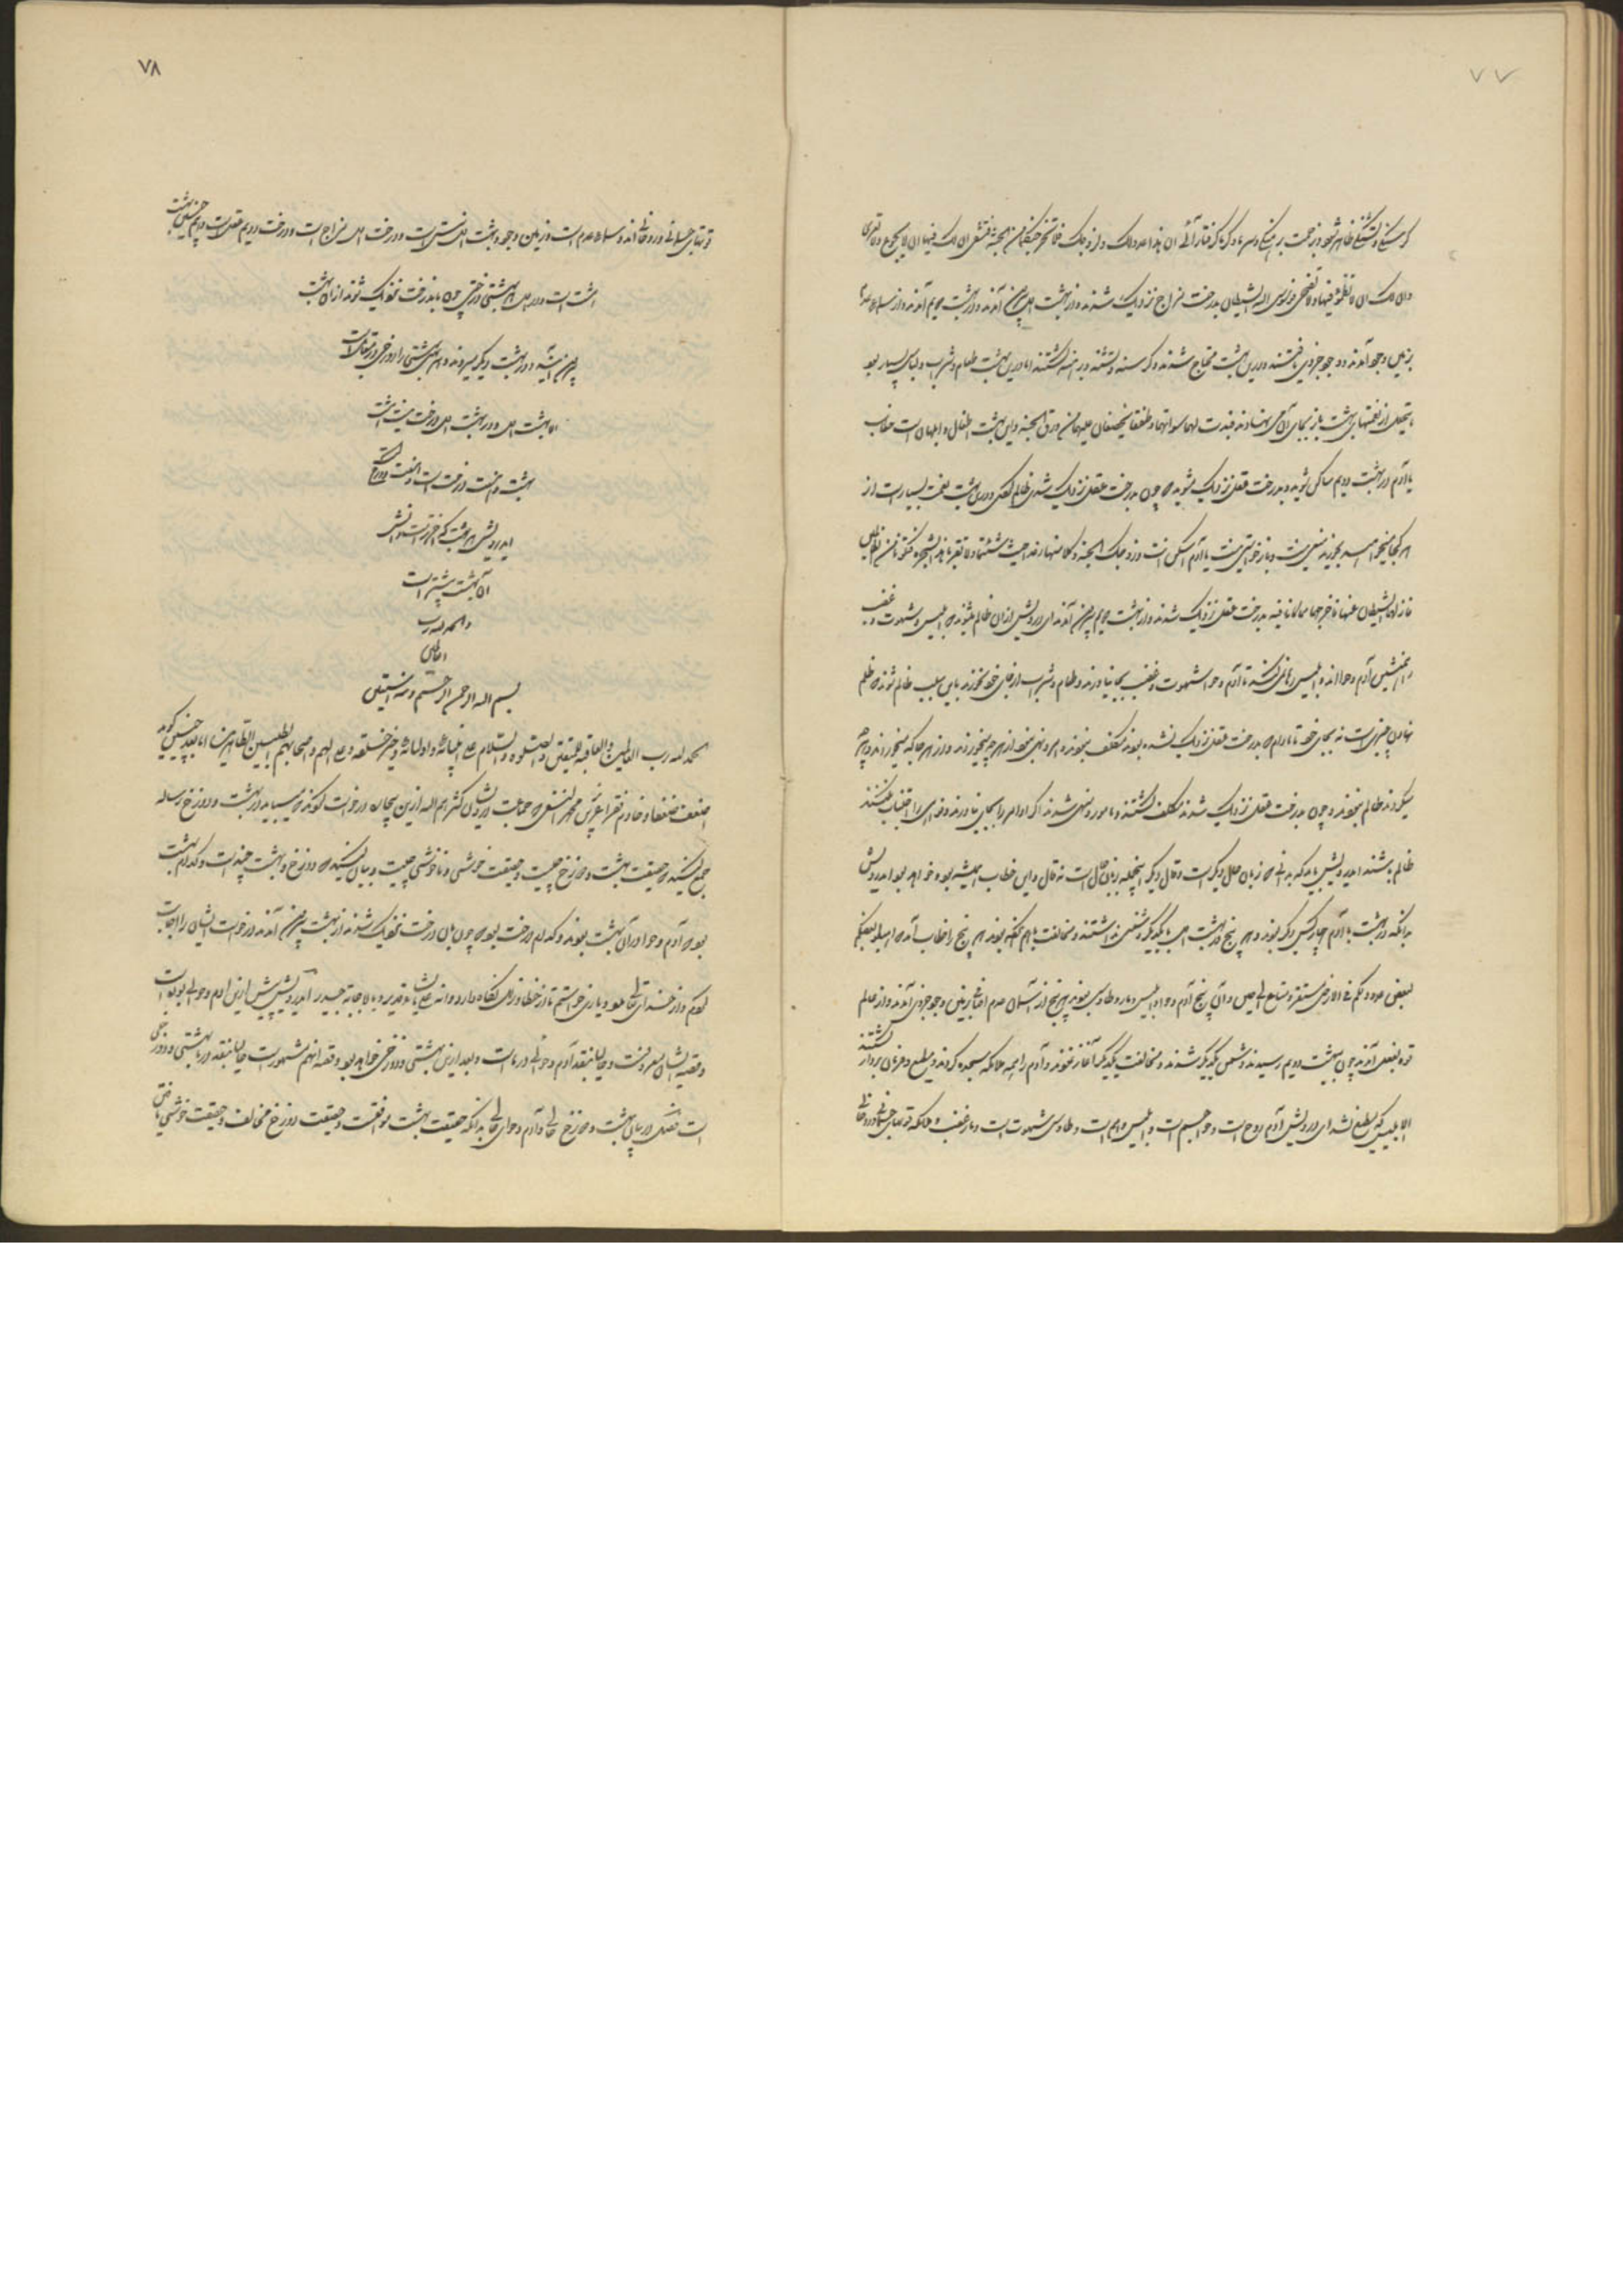 ۷۷
کرسنکی و تشنکی ظاهر شود و زحمت برهنکی و سرما و کرما کرفتار آئی ان هذا عدو لک و لزوجک فلا یخرجنکما من الجنة فتشقی ان لک فیها ان لا تجوع و لا تعری
و ان لک ان لا تظمؤ فیها و لا تضحی فوسوس الیه الشیطان بدرخت مزاج نزدیک شدند و از بهشت اول بیرون آمدند و در بهشت دویم آمدند و از سماء عدم
بزمین وجود آمدند و وجود جزوی یافتند و درین بهشت محتاج شدند و کرسنه و تشنه و برهنه کشتند اما درین بهشت طعام و شراب و لباس بسیار بود
از نعمتهای بهشت باز بجای آن می نهادند فبدت لهما سواتهما و طفقا یخصفان علیهما من ورق الجنة و این بهشت اطفال و ابلهان است خطاب
یا آدم در بهشت دویم ساکن شوید و بدرخت عقل نزدیک مشوید که چون بدرخت عقل نزدیک شدی ظالم کشتی و درین بهشت نعمت بسیار است از
هر کجا میخواهید بخورید یا آدم اسکن انت و زوجک الجنة و کلا منها رغدا حیث شئتما و لا تقربا هذه الشجرة فتکونا من الظالمین
فازلهما الشیطان عنها فاخرجهما مما کانا فیه بدرخت عقل نزدیک شدند و از بهشت دویم بیرون آمدند ای درویش از ان ظالم میشوند که ابلیس و شهوت و غضب
همنشین آدم و حوااند و ابلیس رها نمی کند تا آدم و حوا شهوت و غضب بجای نیاورند و طعام و شراب از جای خود نخورند باین سبب ظالم شوند که ظلم
نهادن چیزیست نه بجای خود تا مادام که بدرخت عقل نزدیک نشده بودند مکلف نبودند و امر و نهی نبود از هر چه میخوردند و از هر جا که میخوردند و هر چه
میکردند ظالم نبودند و چون بدرخت عقل نزدیک شدند مکلف کشتند و مامور و منهی شدند اکر اوامر را بجای نیاورند و نواهی را اجتناب نکنند
ظالم باشند ایدرویش باید که بدانی که زبان حال دیکر است و قال دیکر اینجمله بزبان حال است نه قال و این خطاب همیشه بود و خواهد بود ایدرویش
بدانکه در بهشت با آدم چهار کس دیکر بودند و هر پنج در بهشت اول با یکدیکر دشمنی نداشتند و مخالفت باهم نکرده بودند هر پنج را خطاب آمد که اهبطوا بعضکم
لبعض عدو و لکم فی الارض مستقر و متاع الی حین و آن پنج آدم و حوا و ابلیس و مار و طاوس بودند هر پنج از آسمان عدم بزمین وجود جزوی آمدند و از عالم
قوة بفعل آمدند چون ببهشت دویم رسیدند دشمن یکدیکر شدند و مخالفت یکدیکر آغاز نمودند و آدم را همه ملائکه سجده کردند و مطیع و فرمان بردار کشتند
الا ابلیس که مطیع نشد ای درویش آدم روح است و حوا جسم است و ابلیس وهم است و طاوس شهوت است و مار غضب و ملائکه قوتهای جسمانی و روحانی
۷۸
قوتهای جسمانی و روحانی اند و سماء عدم است و زمین وجود و بهشت اول نیستی است و درخت اول مزاج است و درخت دویم عقل است ای درویش بهشت
هشت است و در هر بهشتی درختی چون بدرخت نزدیک شوند از ان بهشت
بیرون آیند و در بهشت دیکر میروند و هر بهشتی را دوزخی در مقابل است
اما بهشت اول و در بهشت اول درخت نیست
ایدرویش هر بهشت که
آن بهشت بیشتر است
و الحمد لله رب
العالمین
بسم الله الرحمن الرحیم و به نستعین
الحمد لله رب العالمین و العاقبة للمتقین و الصلوة و السلام علی انبیائه و اولیائه و خیر خلقه و علی الهم و اصحابهم الطیبین الطاهرین اما بعد چنین کوید
اضعف ضعفا و خادم فقرا عزیز بن محمد النسفی که جماعت درویشان کثرهم الله ازین بیچاره درخواست کردند که میباید در بهشت و دوزخ رساله
جمع کنید که حقیقت بهشت و دوزخ چیست و حقیقت خوشی و ناخوشی چیست و بیان کنید که دوزخ و بهشت چند است و کدام بهشت
بود که آدم و حوا در آن بهشت بودند و کدام درخت بود که چون بان درخت نزدیک شدند از بهشت بیرون آمدند درخواست ایشان را اجابت
کردم و از خداوند تعالی مدد و یاری خواستم تا از خطا و زلل نکاه دارد و انه علی ما یشاء قدیر و بالاجابة جدیر ایدرویش پیش ازین ادم و حوا بود است
و قصه ایشان معروفست و حالیا نقد آدم و حوا در ماست و بعد ازین بهشتی و دوزخی خواهد بود و قصه انهم مشهور است حالیا نقد در ما بهشتی و دوزخی
است فصل در بیان بهشت و دوزخ حالی و آدم و حوای حالی بدانکه حقیقت بهشت موافقت و حقیقت دوزخ مخالفت و حقیقت خوشی یافتن